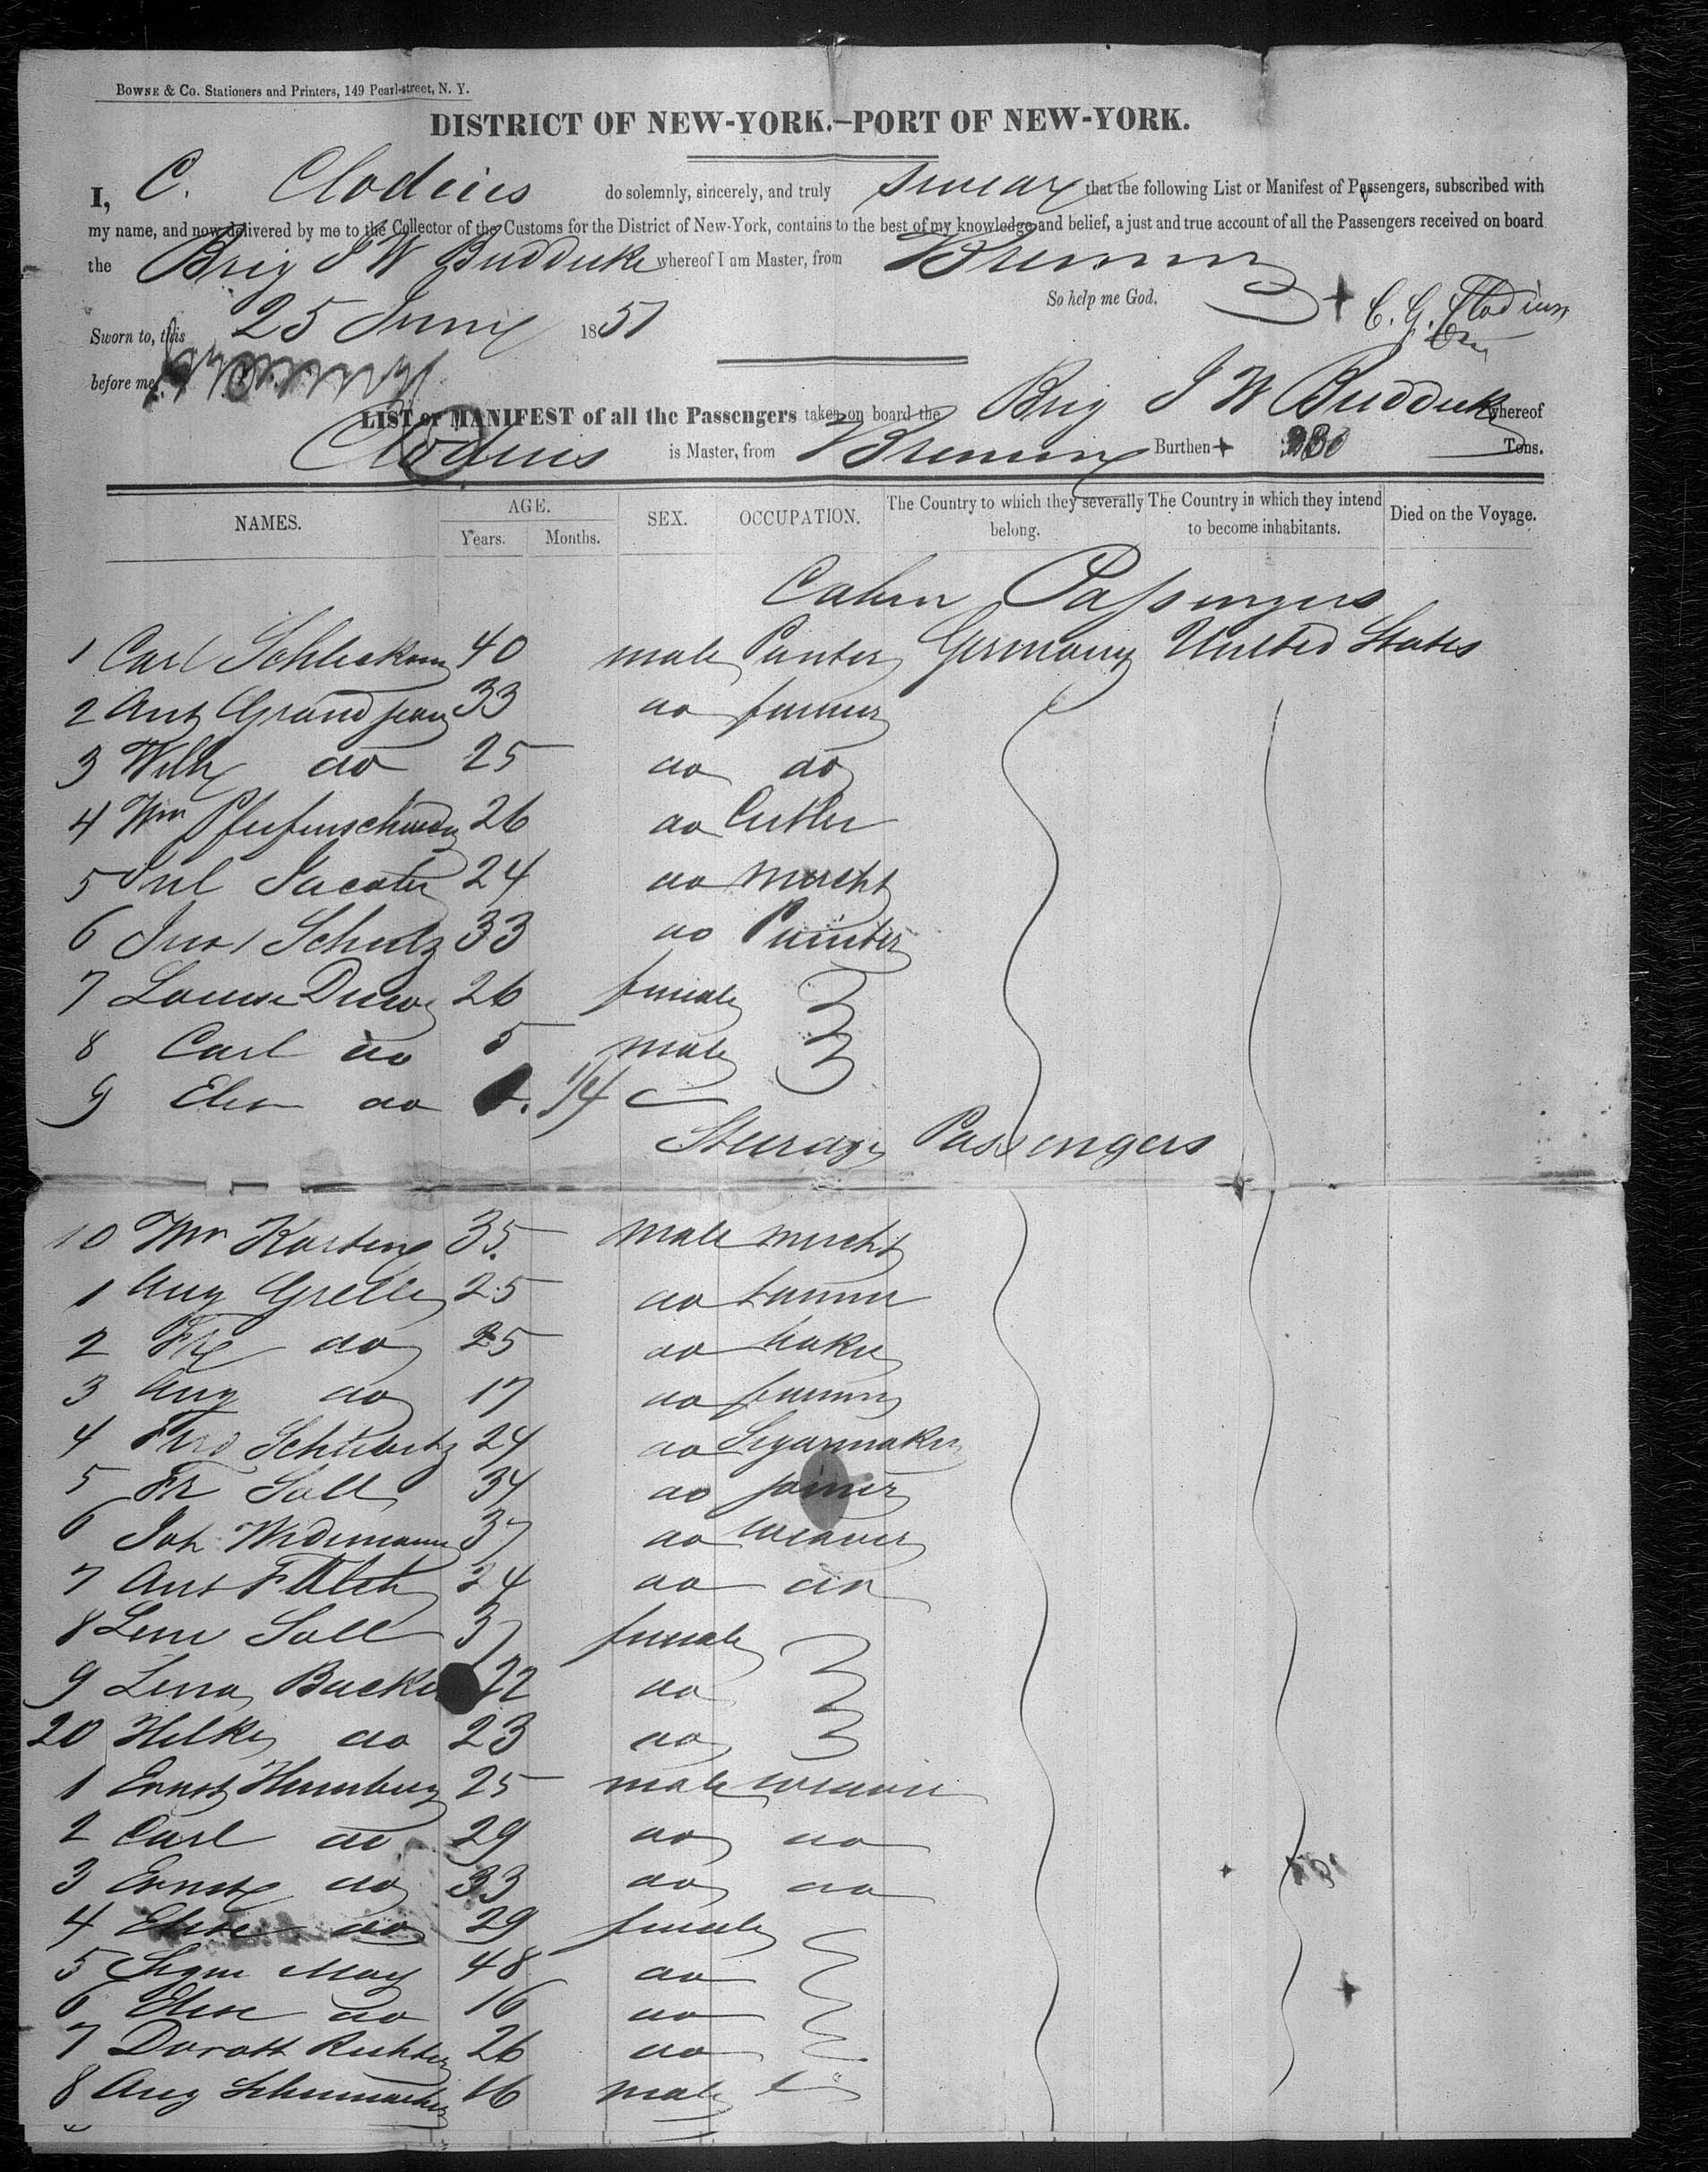 BOWNE & Co. Stationers and Printers, 149 Pearl-street, N. Y.
DISTRICT OF NEW-YORK.—PORT OF NEW-YORK.
I, C. Clodius do solemnly, sincerely, and truly swear that the following List or Manifest of Passengers, subscribed with
my name, and now delivered by me to the Collector of the Customs for the District of New-York, contains to the best of my knowledge and belief, a just and true account of all the Passengers received on board
the Brig J W Budduke whereof I am Master, from Bremen
So help me God.
Sworn to, this 25 June 1851
C. G. Clodius
before me,
LIST or MANIFEST of all the Passengers taken on board the Brig J W Budduke whereof
Clodius is Master, from Bremen Burthen Tons.
NAMES. AGE. Years. Months. SEX. OCCUPATION. The Country to which they severally belong. The Country in which they intend to become inhabitants. Died on the Voyage.
Cabin Passengers
1 Carl 40 male Painter Germany United States
2 Ant Grandjean 33 do farmer
3 Wilh do 25 do do
4 Wm 26 do Cutler
5 Jul 24 do mercht
6 Schulz 33 do Painter
7 Louise 26 female
8 Carl do 5 male
9 do
Steerage Passengers
10 Wm Karten 35 male mercht
1 Aug Grelle 25 do tanner
2 do 25 do baker
3 Aug do 17 do farmer
4 24 do Segarmaker
5 Fr Soll 34 do joiner
6 Joh Widemann 37 do weaver
7 Ant 24 do do
8 Soll 37 female
9 Lena 22 do
20 do 23 do
1 Ernst 25 male weaver
2 Carl do 29 do do
3 Ernst do 33 do do
4 Elise do 29 female
5 May 48 do
6 Elise do 16 do
7 Doroth Richter 26 do
8 Aug Schumacher 16 male